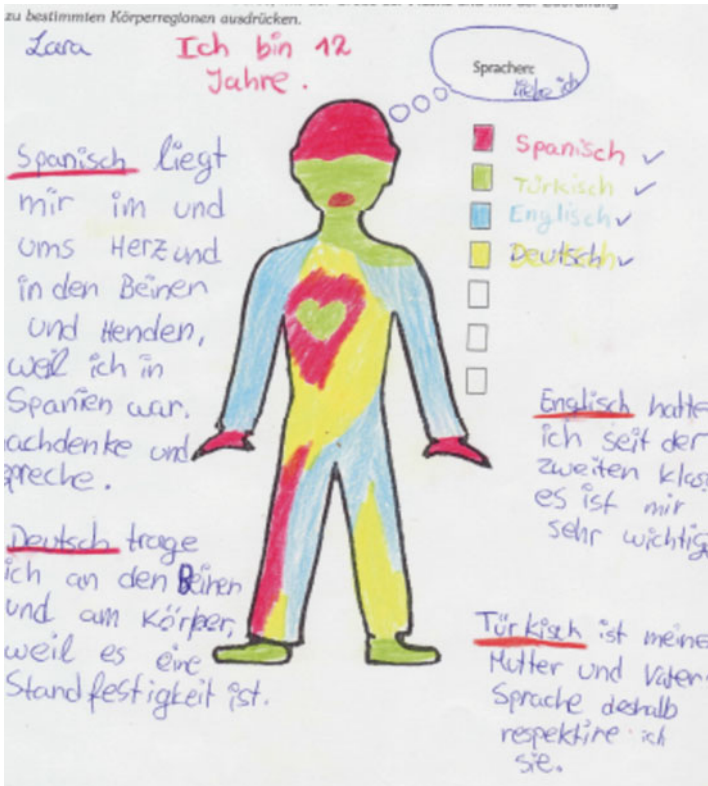 zu bestimmten Körperregionen ausdrücken.
Lara
Ich bin 12
Jahre.
Sprachen:
liebe ich
Spanisch ✓
Türkisch ✓
Englisch ✓
Deutsch ✓
Spanisch liegt
mir im und
ums Herz und
in den Beinen
und Henden,
weil ich in
Spanien war.
achdenke und
preche.
Deutsch trage
ich an den Beinen
und am Körper,
weil es eine
Standfestigkeit ist.
Englisch hatte
ich seit der
zweiten Klas
es ist mir
sehr wichtig
Türkisch ist meine
Mutter und Vater-
Sprache deshalb
respektire ich
sie.